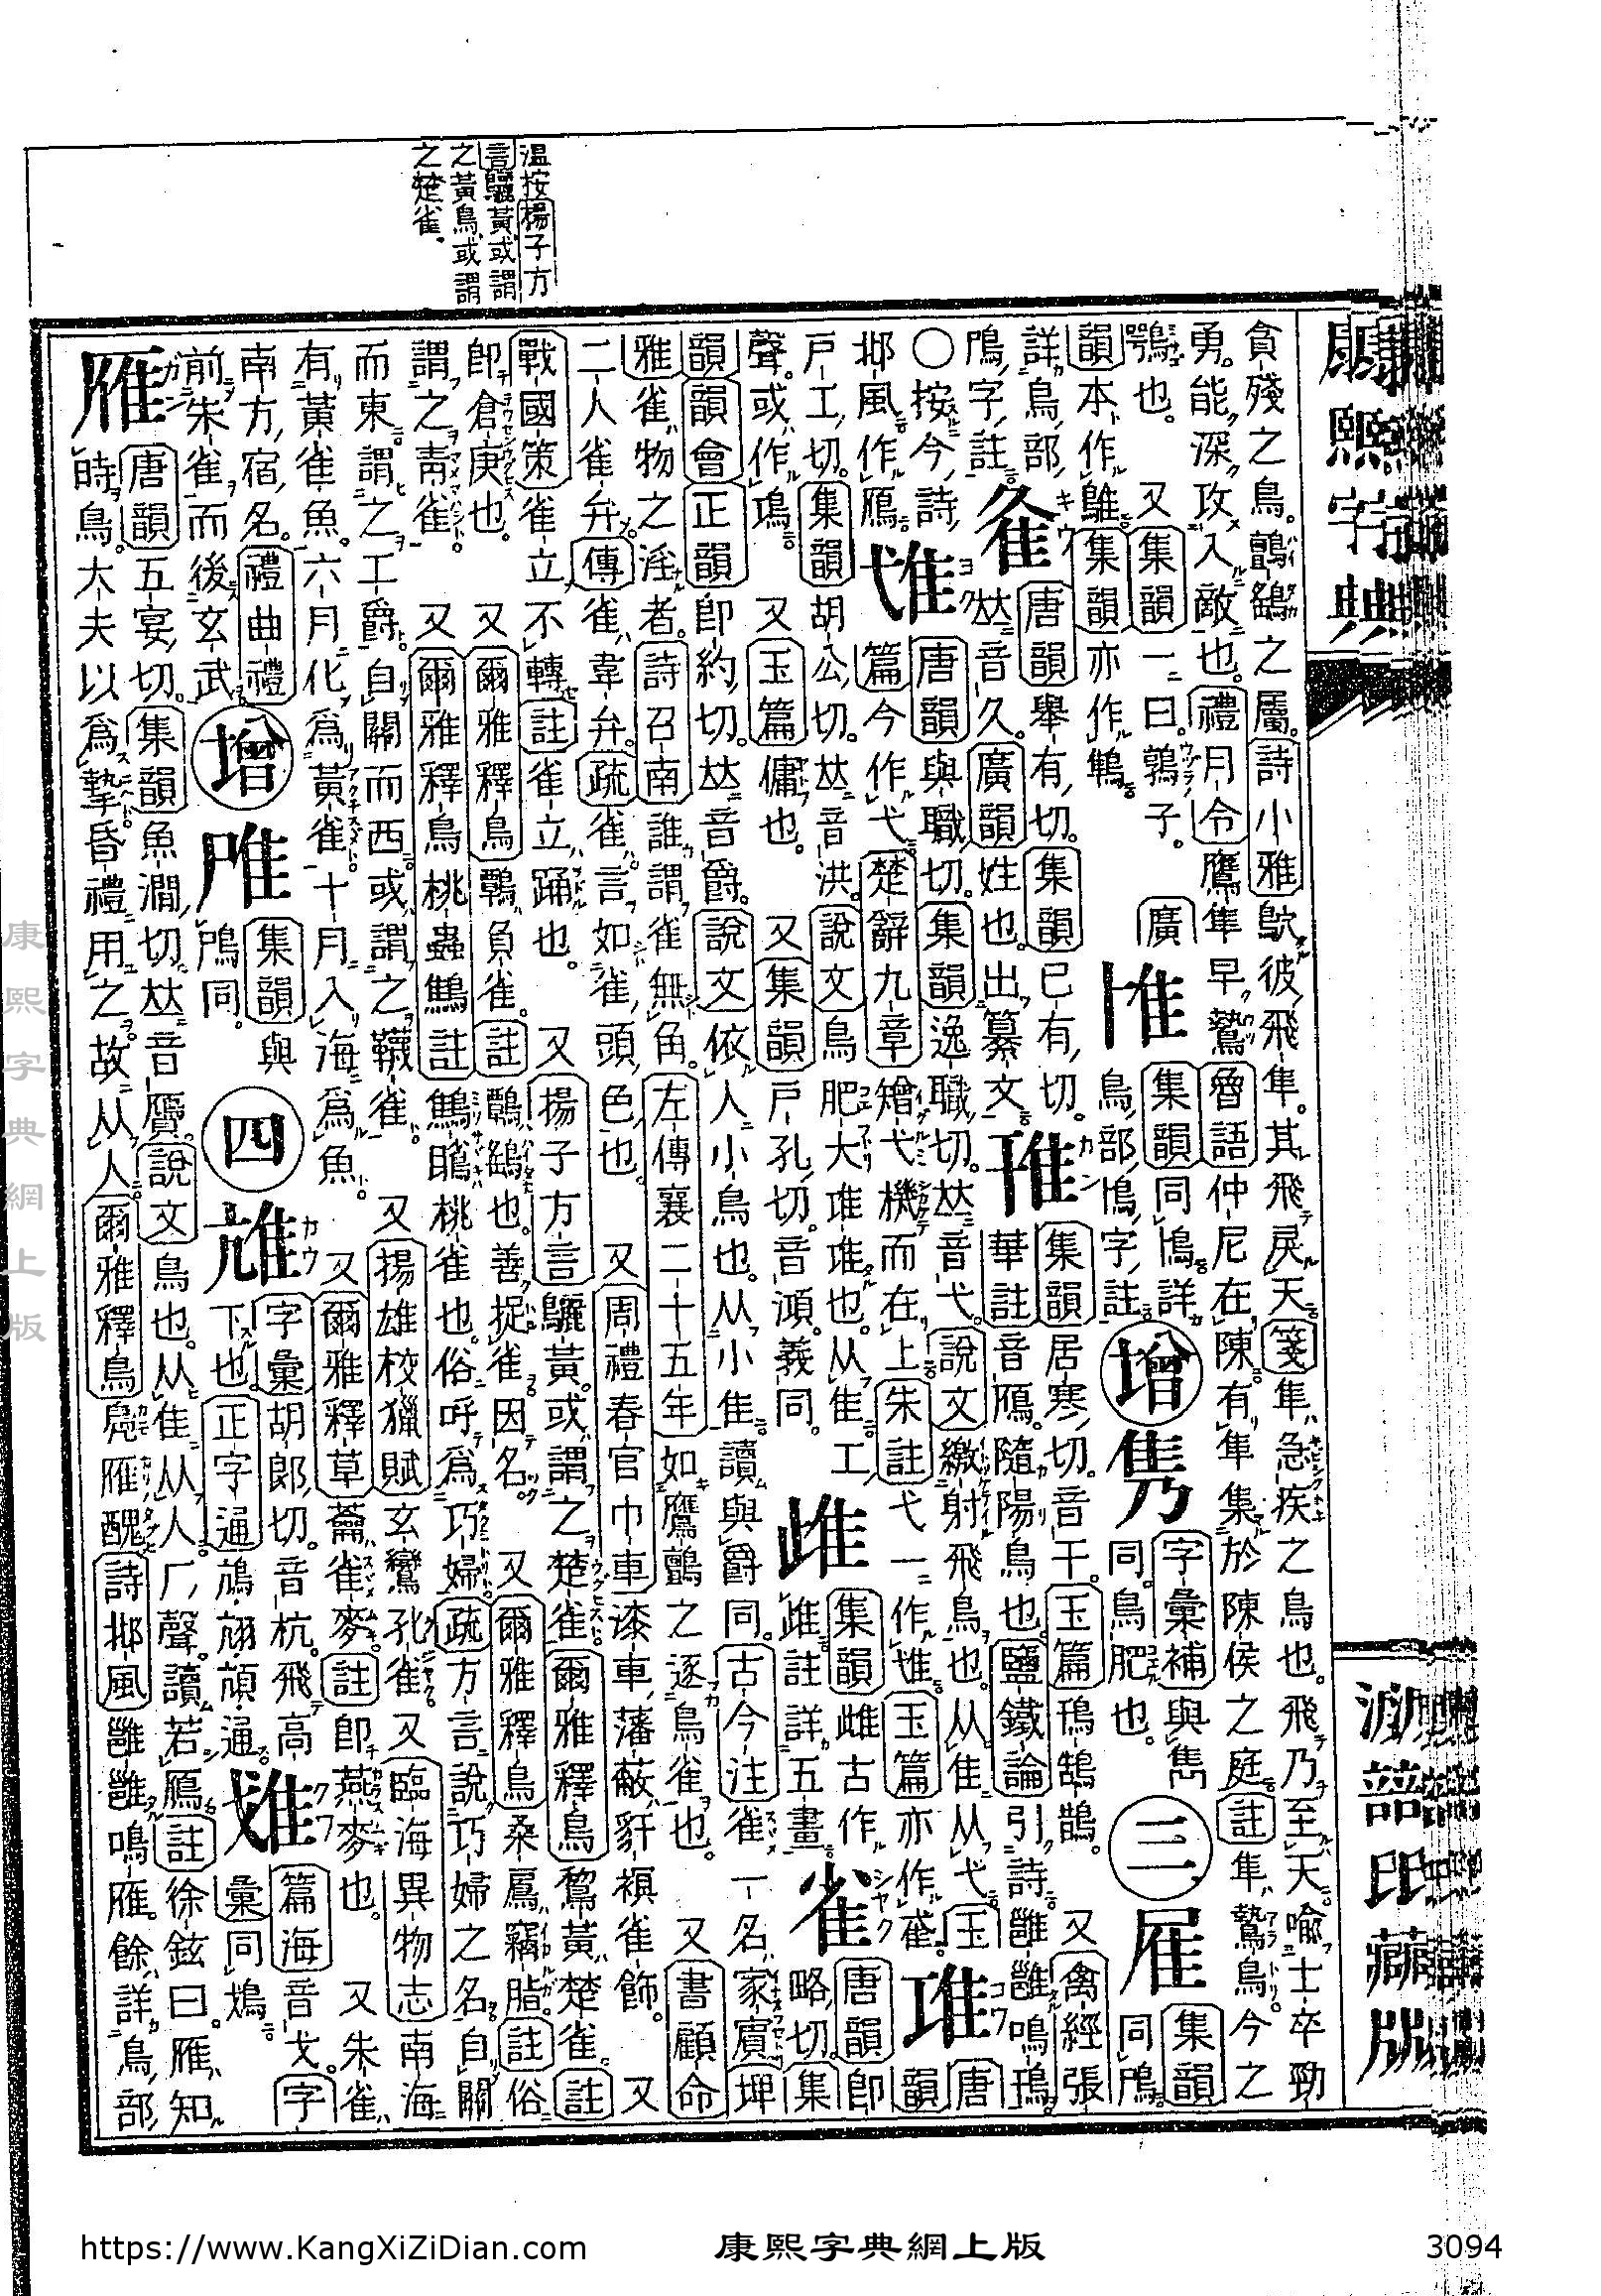 溫按揚子方
言鸝黃或謂
之黃鳥或謂
之楚雀
貪殘之鳥鸇鷂之屬詩小雅鴥彼飛隼其飛戾天箋隼急疾之鳥也飛乃至天喻士卒勁
勇能深攻入敵也禮月令鷹隼早鷙魯語仲尼在陳有隼集於陳侯之庭註隼鷙鳥今之
鶚也
又集韻一曰鶉子
廣
韻本作鵻集韻亦作鶽
集韻同鳪詳
鳥部鳪字註
增
隽
字彙補與雋
同鳥肥也
三
雇
集韻
同鳸
詳鳥部
鳸字註
隺
唐韻舉有切集韻已有切
音久廣韻姓也出纂文
集韻居寒切音干玉篇鳱鵠鵲
又禽經張
華註音雁隨陽鳥也鹽鐵論引詩雝雝鳴鳱
○按今詩
邶風作鴈
隿
唐韻與職切集韻逸職切𠀤音弋說文繳射飛鳥也从隹从弋玉
篇今作弋楚辭九章矰弋機而在上朱註弋一作隿玉篇亦作
唐韻
戸工切集韻胡公切𠀤音洪說文鳥肥大䧹䧹也从隹工
聲或作鳿
又玉篇傭也
又集韻戸孔切音澒義同
集韻雌古作
註詳五畫
雀
唐韻卽
略切集
韻韻會正韻卽約切𠀤音爵說文依人小鳥也从小隹讀與爵同古今注雀一名家賓埤
雅雀物之淫者詩召南誰謂雀無角左傳襄二十五年如鷹鸇之逐鳥雀也
又書顧命
二人雀弁傳雀韋弁疏雀言如雀頭色也
又周禮春官巾車漆車藩蔽豻𧜀雀飾
又
戰國策雀立不轉註雀立踊也
又揚子方言鸝黃或謂之楚雀爾雅釋鳥鵹黃楚雀註
卽倉庚也
又爾雅釋鳥鸅負雀註鸅鷂也善捉雀因名
又爾雅釋鳥桑鳸竊脂註俗
謂之靑雀
又爾雅釋鳥桃蟲鷦註鷦䳟桃雀也俗呼爲巧婦疏方言說巧婦之名自關
而東謂之工爵自關而西或謂之韈雀
又揚雄校獵賦玄鸞孔雀又臨海異物志南海
有黃雀魚六月化爲黃雀十月入海爲魚
又爾雅釋草蘥雀麥註卽燕麥也
又朱雀
南方宿名禮曲禮
前朱雀而後玄武
增
集韻與
鳸同
四
字彙胡郞切音杭飛高
下也正字通鴋翃頏通
篇海音戈字
彙同鴆
雁
唐韻五宴切集韻魚澗切𠀤音贗說文鳥也从隹从人厂聲讀若鴈註徐鉉曰雁知
時鳥大夫以爲摯昏禮用之故从人爾雅釋鳥鳧雁醜詩邶風雝雝鳴雁餘詳鳥部
康熙字典
康熙字典網上版
https://www.KangXiZiDian.com
康熙字典網上版
3094